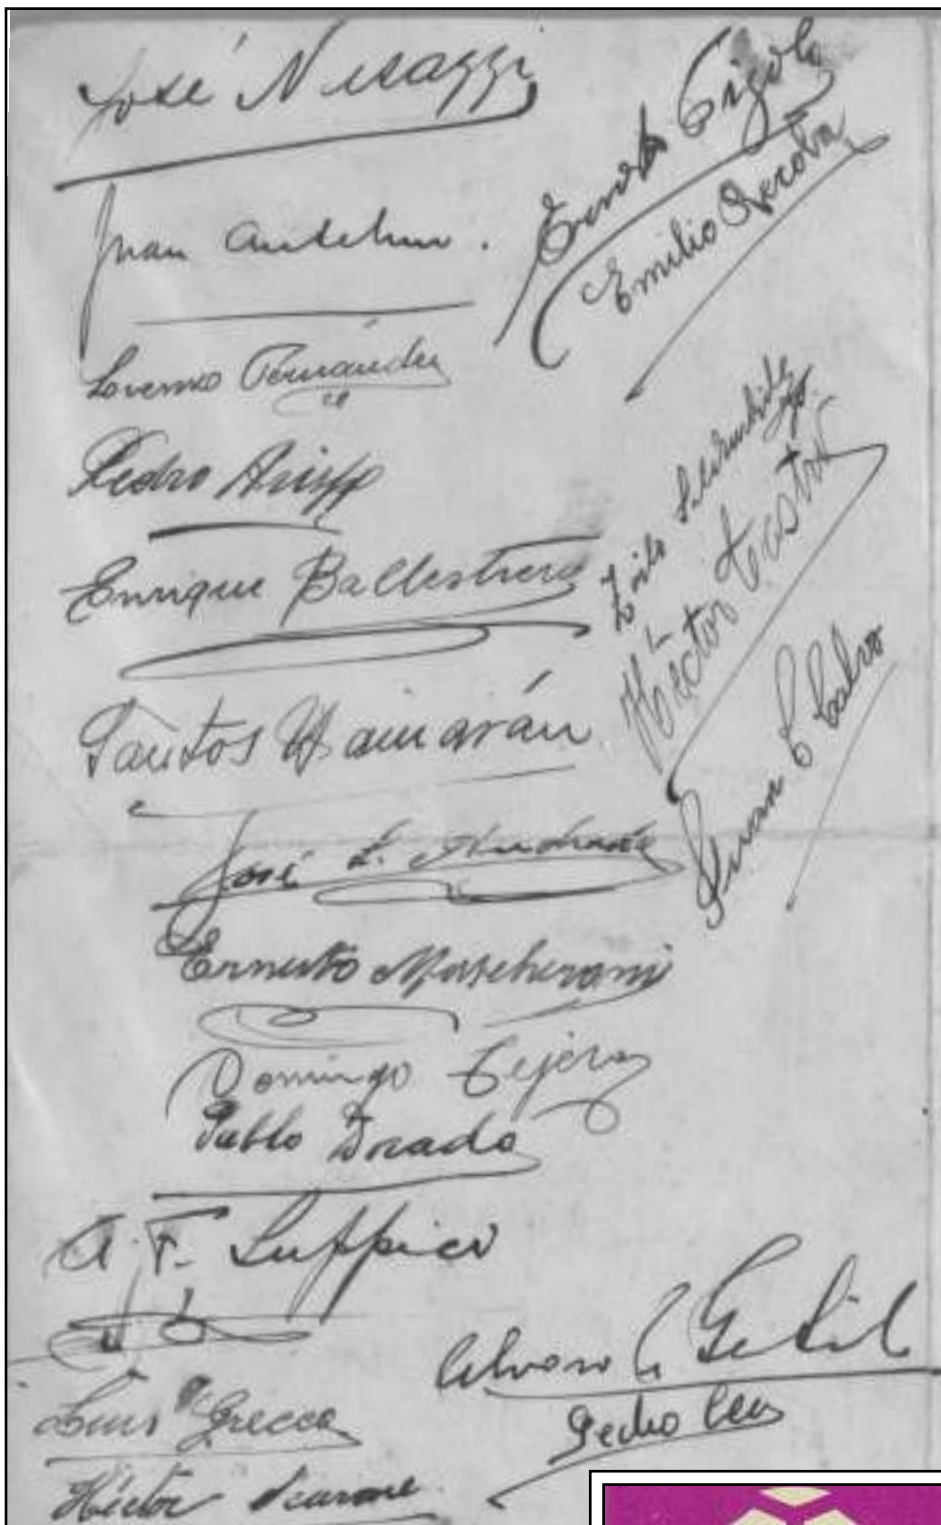 José Nasazzi
Juan Anselmo.
Lorenzo Fernández
Pedro Arispe
Enrique Ballestrero
Santos Urdinarán
José L. Andrade
Ernesto Mascheroni
Domingo Tejera
Pablo Dorado
A. F. Suppici
Luis Greco
Héctor Scarone
Ernesto Fígoli
Emilio Recoba
Zoilo Saldombide
Héctor Castro
Juan C Calvo
Alvaro Gestido
Pedro Cea